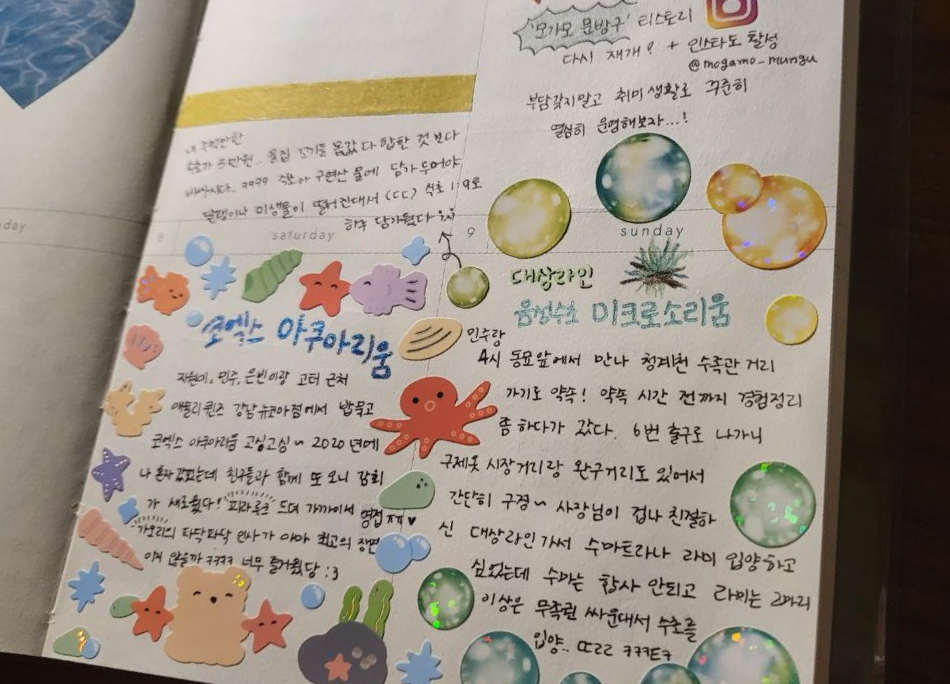 '모가모 문방구' 티스토리
다시 재개? + 인스타도 활성
@mogamo_mungu
부담갖지말고 취미생활로 꾸준히
열심히 운영해보자...!
내 수백만한
수초가 3만원.. 물집 고기들 몸값 다 합한 것 보다
비싸지다.. ㅋㅋㅋㅋ 수초야 구연산 물에 담가두어야
달팽이나 미생물이 떨어진대서 (CC) 식초 1:9로
하루 담가뒀다
8 saturday
9 sunday
day
코엑스 아쿠아리움
자원이, 민주, 은빈이랑 고터 근처
애플리퀸즈 강남뉴코아점에서 밥묵고
코엑스 아쿠아리움 고싱고싱~ 2020년에
나 혼자 갔었는데 친구들과 함께 또 오니 감회
가 새로웠다! 피라루크 드뎌 가까이서 영접ㅠㅠ♥
가오리의 파닥파닥 인사가 아마 최고의 장면
이지 않을까 ㅋㅋㅋㅋ 너무 즐거웠당 :3
대상라인
음성수초 미크로소리움
민주랑
4시 동묘앞에서 만나 청계천 수족관 거리
가기로 약속! 약속 시간 전까지 경험정리
좀 하다가 갔다. 6번 출구로 나가니
구제옷 시장거리랑 완구거리도 있어서
간단히 구경~ 사장님이 겁나 친절하
신 대상라인 가서 수마트라나 라미 입양하고
싶었는데 수마는 합사 안되고 라미는 2마리
이상은 무족권 싸운대서 수초를
입양.. ㄸㄹㄹ ㅋㅋㅋㅌㅋ